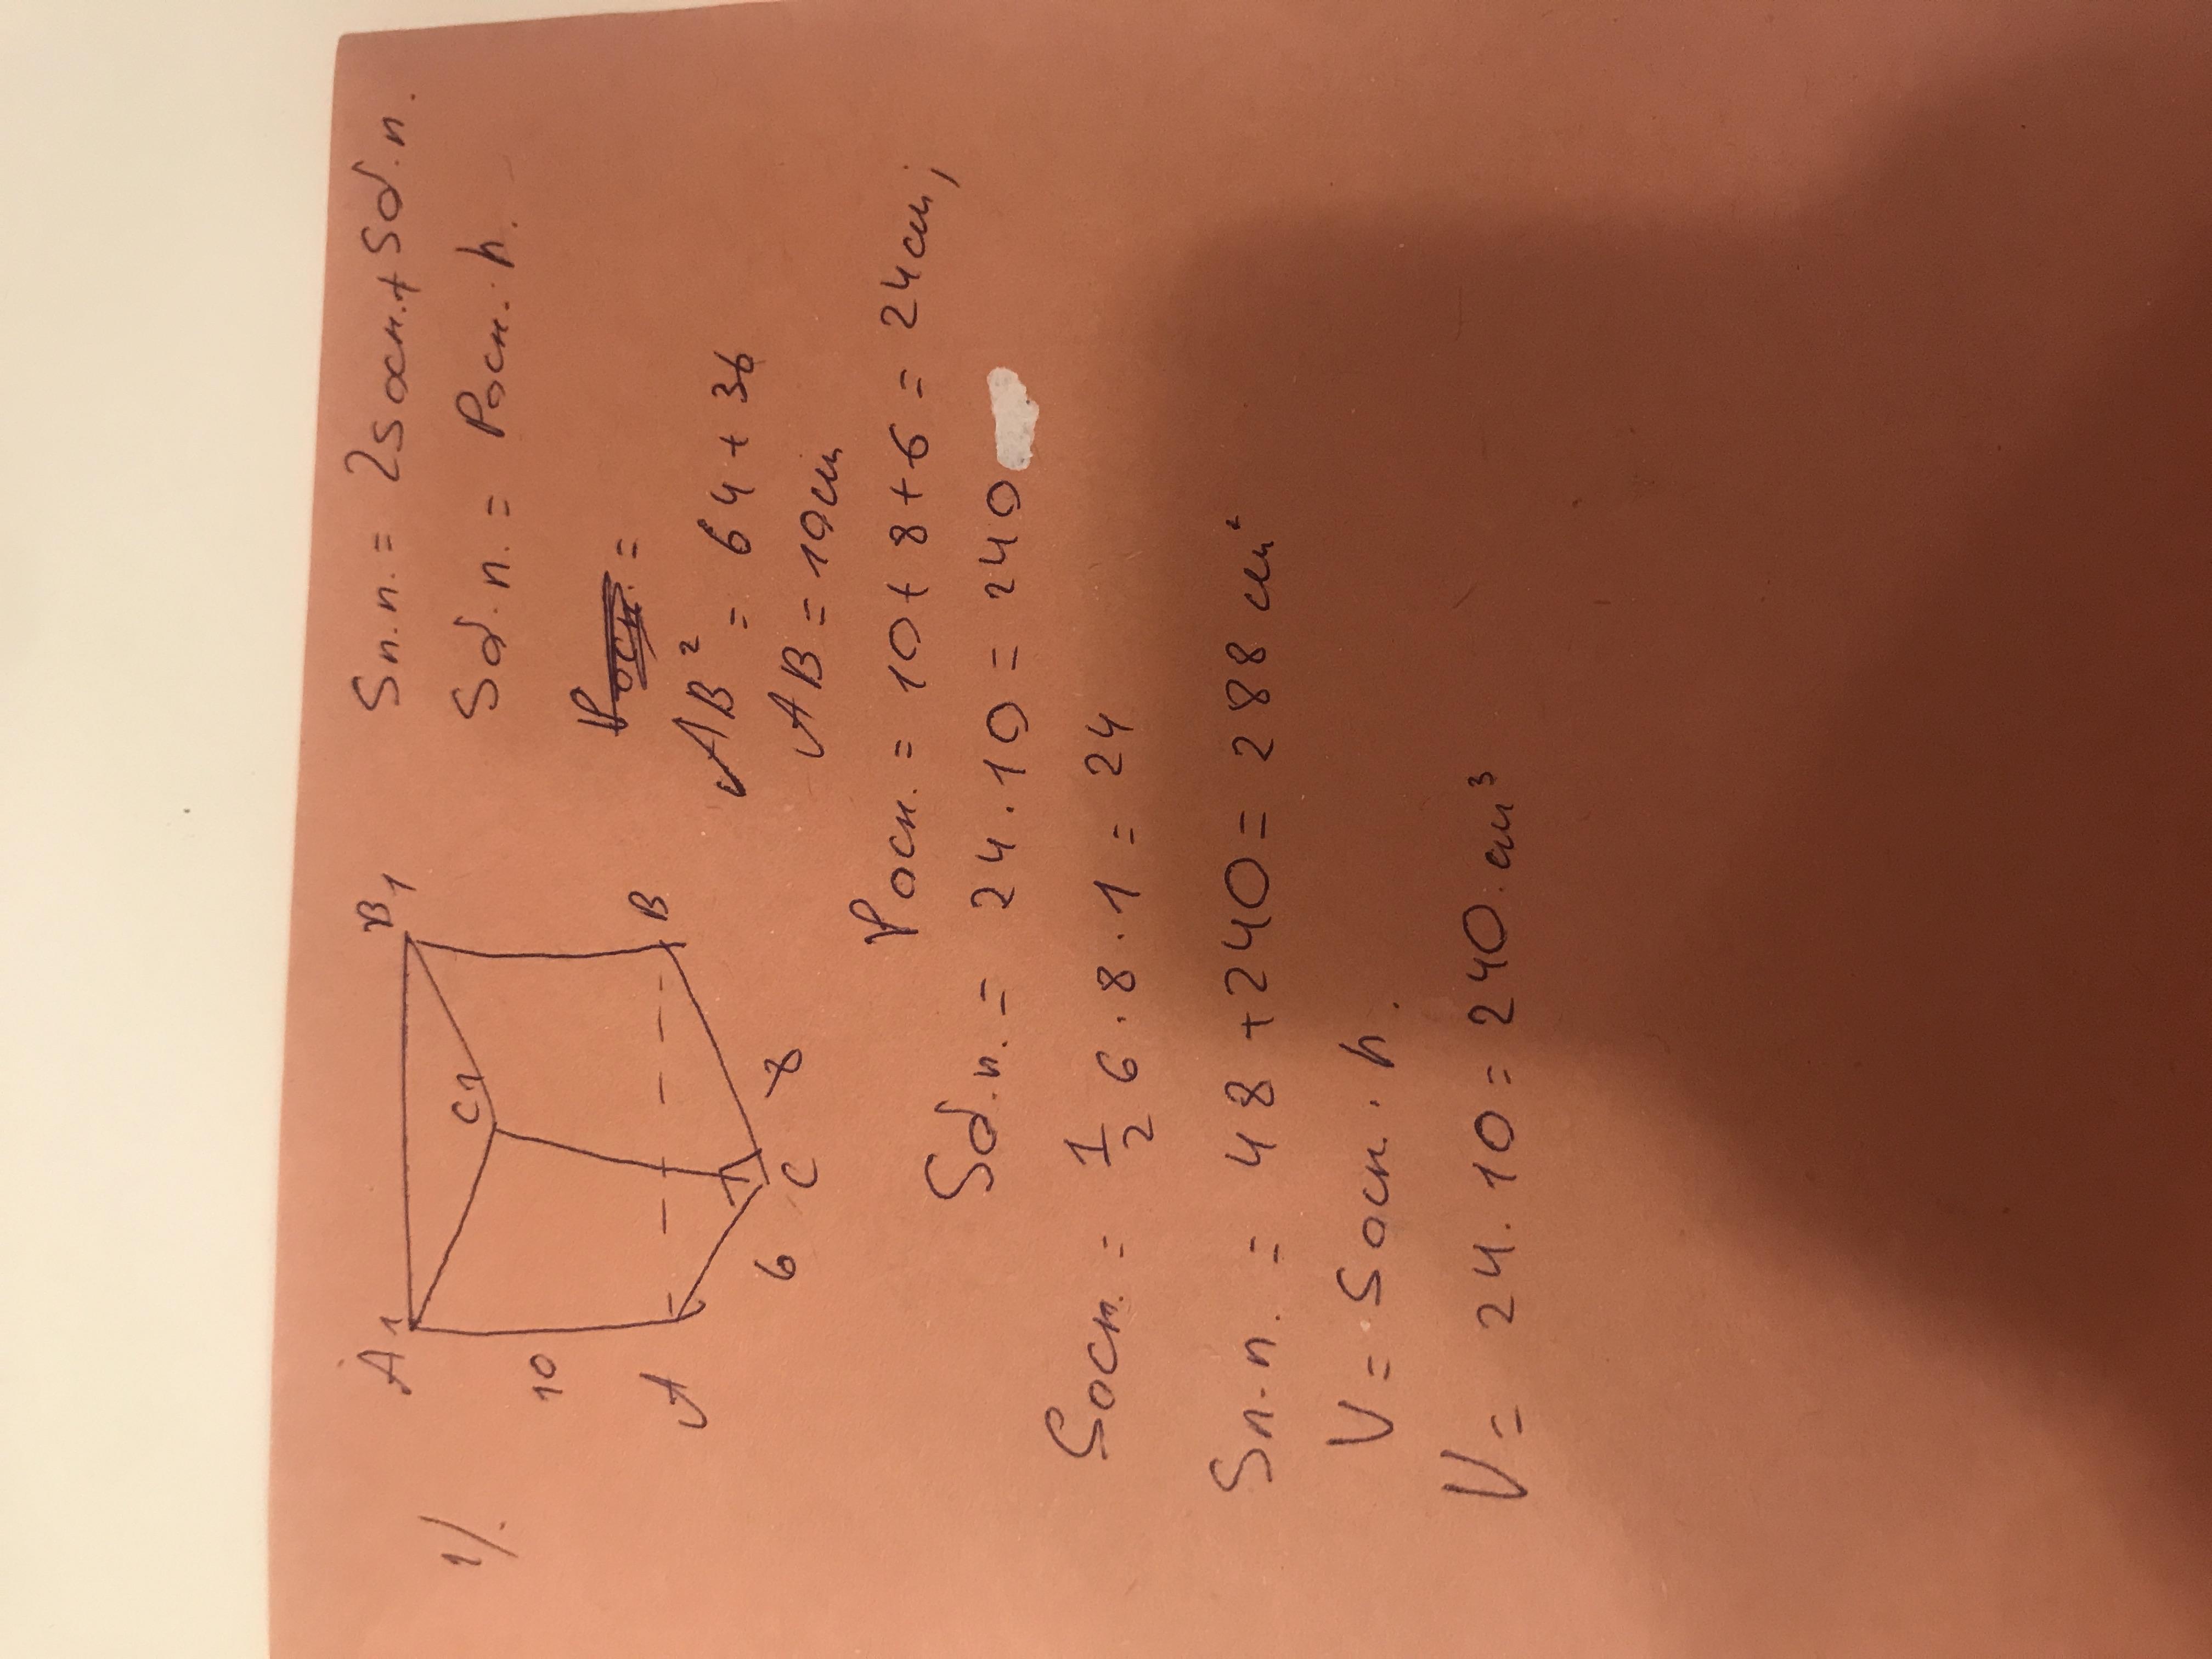 1/.
A1
B1
C1
10
A
B
6
C
8
Sп.п. = 2Sосн.+Sб.п.
Sб.п. = Pосн.·h.
Pосн. =
AB² = 64+36
AB = 10см
Pосн. = 10+8+6 = 24см;
Sб.п. = 24·10 = 240
Sосн. = 1/2 6·8·1 = 24
Sп.п. = 48+240 = 288 см²
V = Sосн.·h.
V = 24·10 = 240.см³